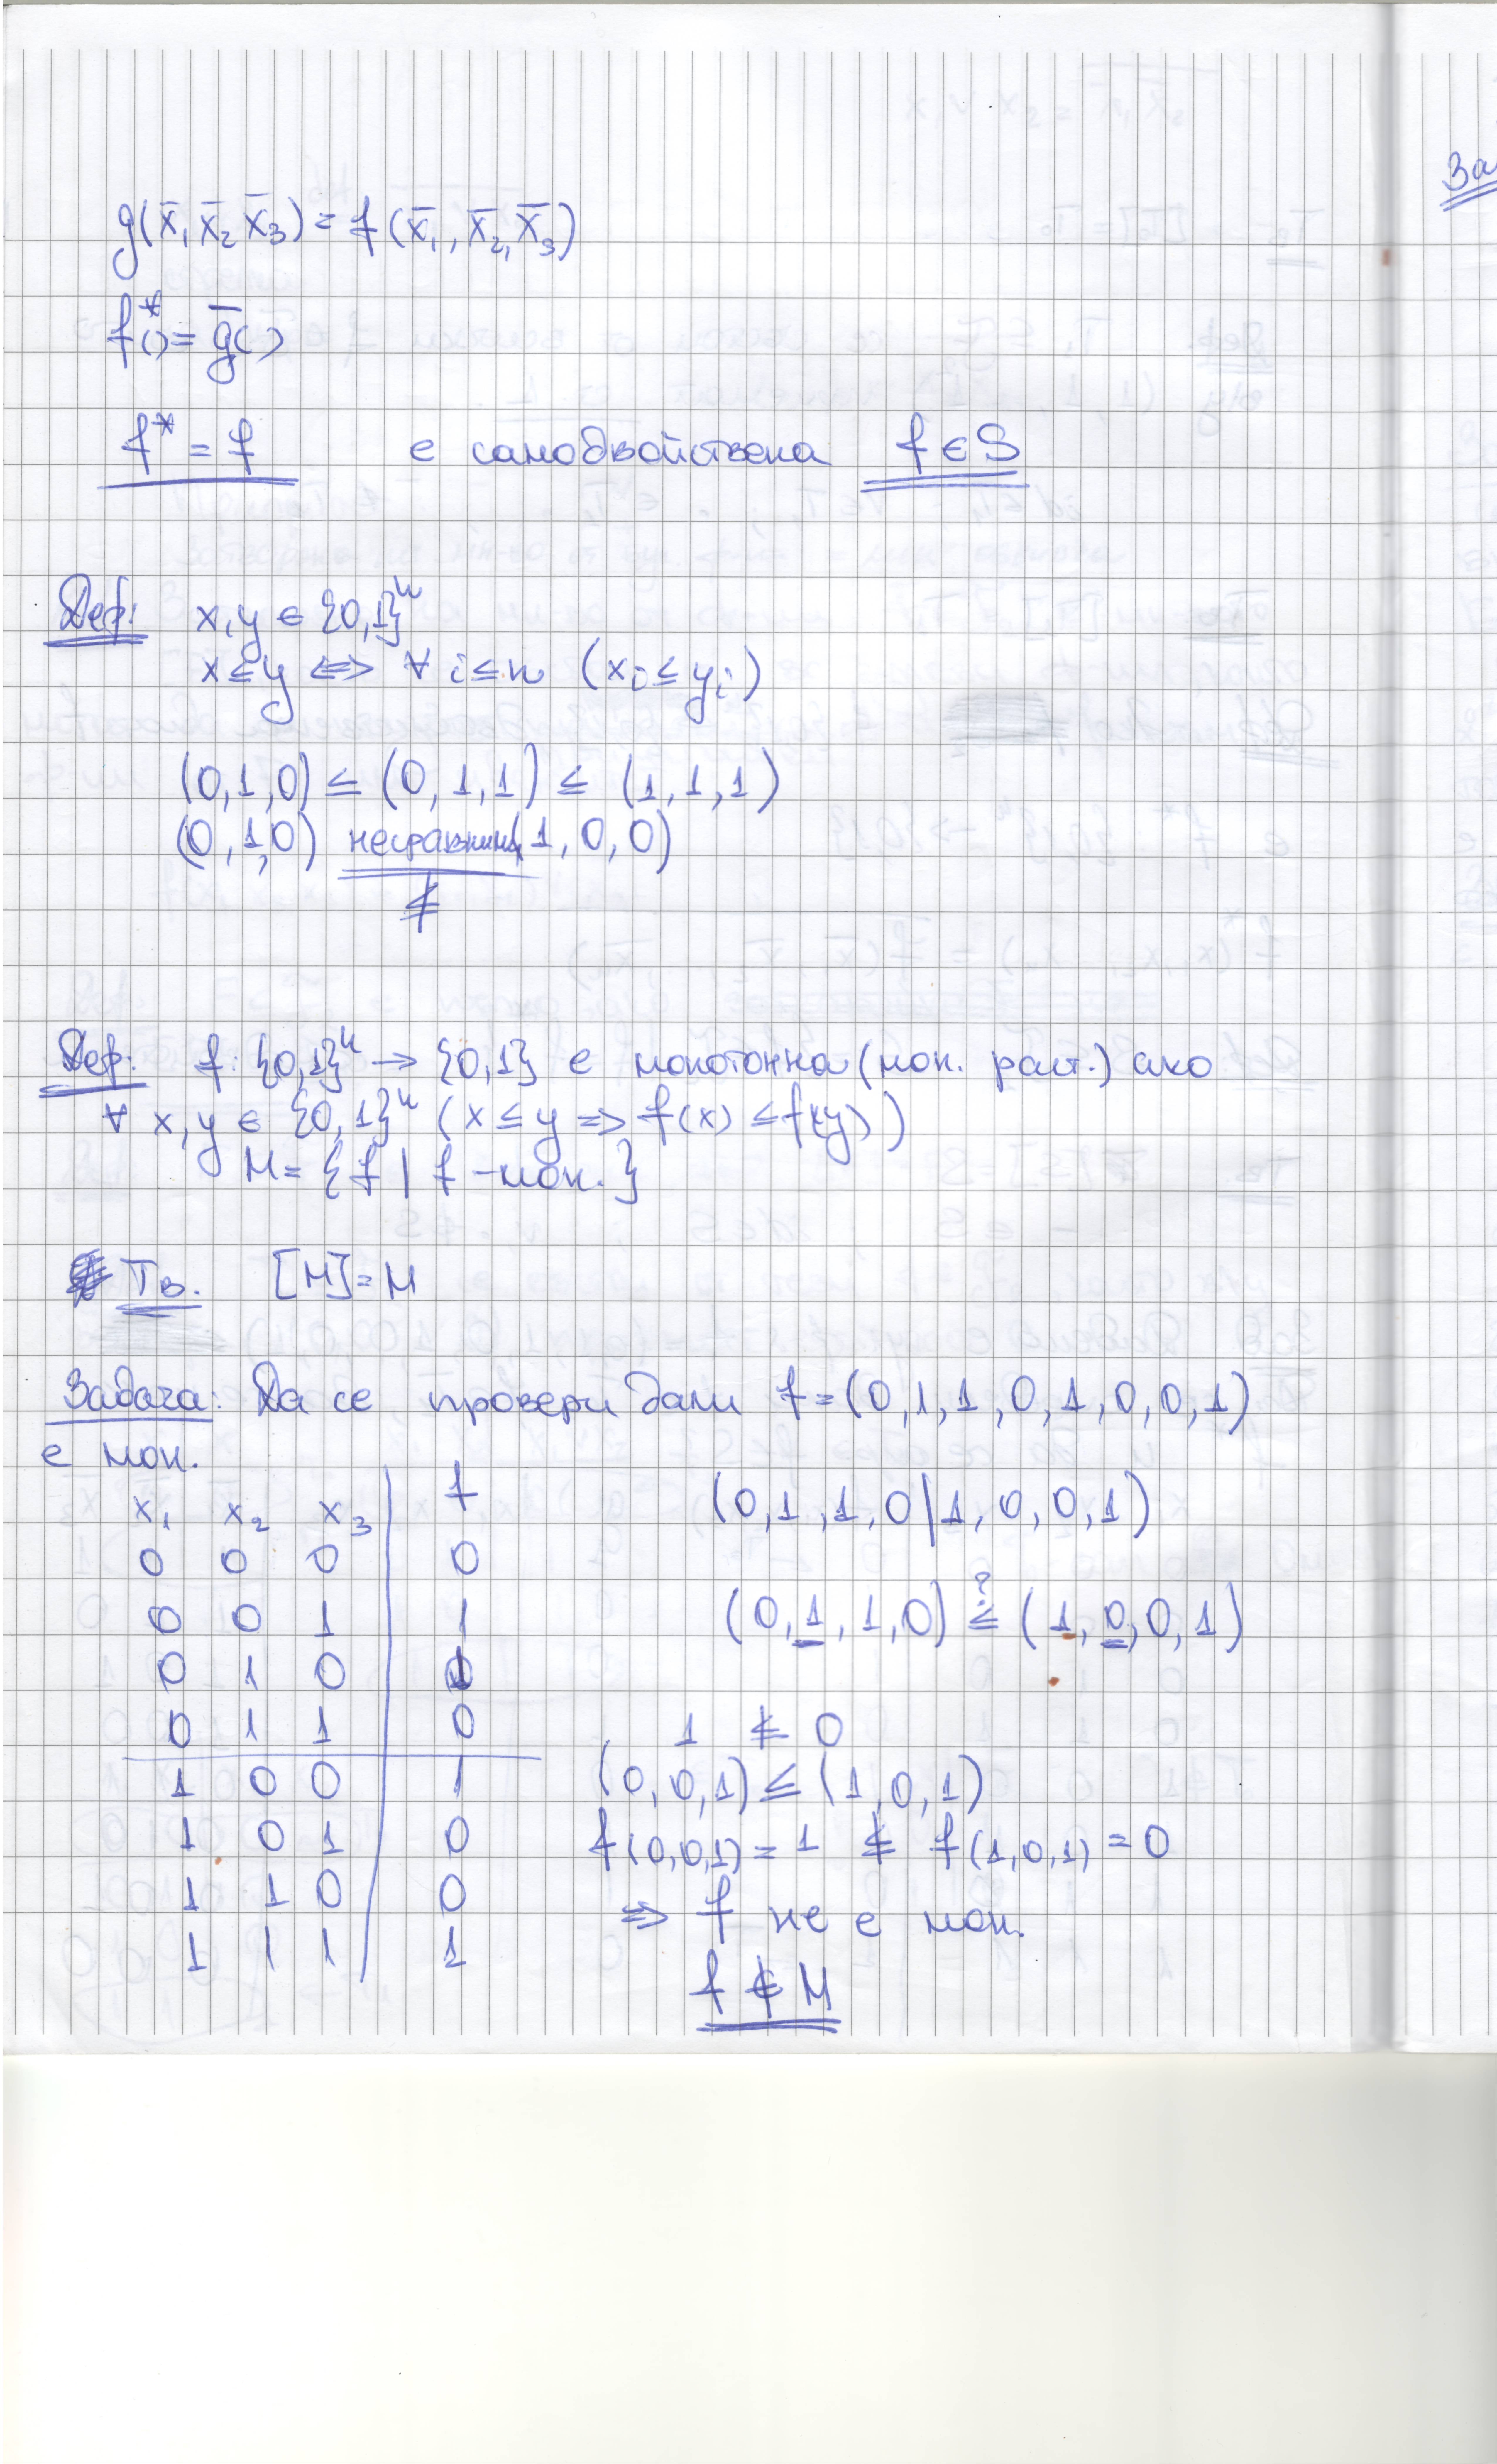 g(x̄₁ x̄₂ x̄₃) = f(x̄₁, x̄₂, x̄₃)
f*() = ḡ()
f* = f е самодвойствена f ∈ S
Деф: x, y ∈ {0,1}ⁿ
x ≤ y ⇔ ∀ i ≤ n (xᵢ ≤ yᵢ)
(0,1,0) ≤ (0,1,1) ≤ (1,1,1)
(0,1,0) несравними (1,0,0)
≰
Деф: f: {0,1}ⁿ → {0,1} е монотонна (мон. раст.) ако
∀ x, y ∈ {0,1}ⁿ (x ≤ y ⇒ f(x) ≤ f(y))
M = {f | f – мон.}
Тв. [M] = M
Задача: Да се провери дали f = (0,1,1,0,1,0,0,1)
е мон.
x₁ x₂ x₃ | f
0 0 0 0
0 0 1 1
0 1 0 1
0 1 1 0
1 0 0 1
1 0 1 0
1 1 0 0
1 1 1 1
(0,1,1,0|1,0,0,1)
(0,1,1,0) ≤? (1,0,0,1)
1 ≰ 0
(0,0,1) ≤ (1,0,1)
f(0,0,1) = 1 ≰ f(1,0,1) = 0
⇒ f не е мон.
f ∉ M